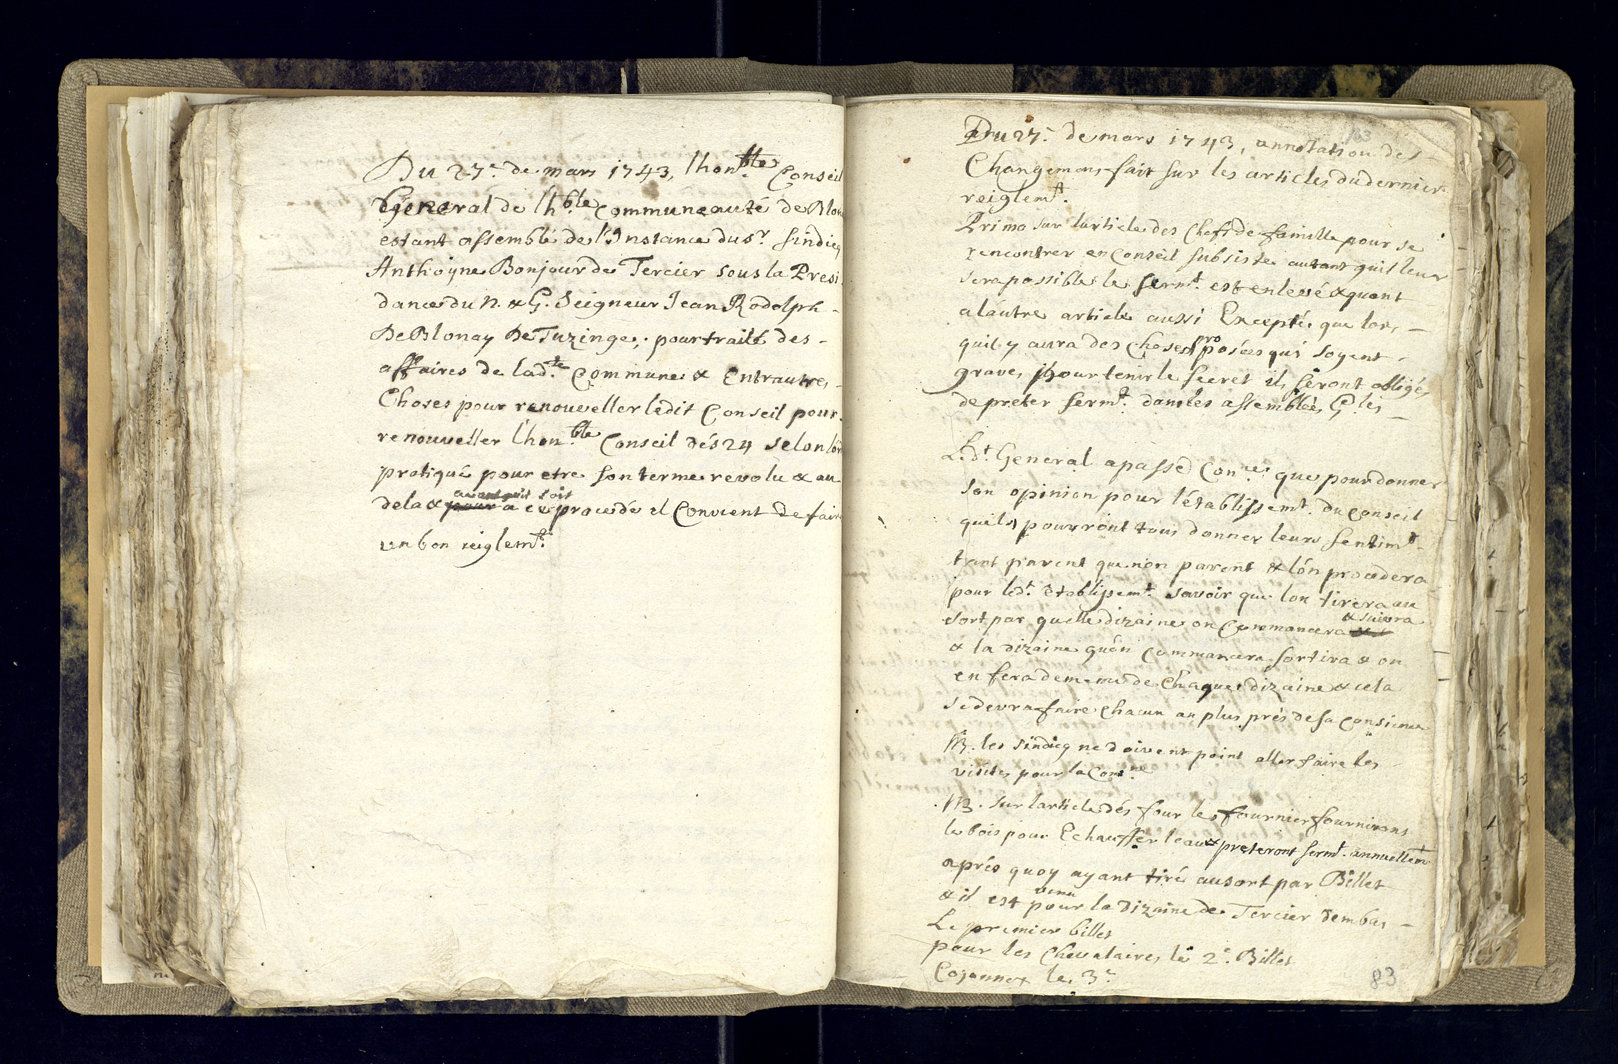 Du 27.e de mars 1743, lhon.ble Conseil
General de lh.ble Communeauté de Blon
estant assemblé de l'Instance du s.r sindicq
Anthoyne Bonjour de Tercier sous la Presi
dance du N. & G. Seigneur Jean Rodolph
De Blonay De Tuzinge, pour traité des
affaires de lad.te Commune & Entrautre,
Choses pour renouveller ledit Conseil pour
renouveller lhon.ble Conseil dés 24 selon lon
pratiqué pour etre son terme revolu & au
avant quil soit
dela & pour a ce procedé el Convient de faire
un bon reiglem.t
Du 27.e de mars 1743, annotation des
Changemens fait sur les articles du dernier
reiglem.t
Primo sur l'article des Cheft de famille pour se
rencontrer en Conseil subsiste autant quil leur
sera possible le serm.t est enlevé & quant
a lautre article aussi Excepté que lors
quil y aura des choses proposées qui soyent
grave, pour tenir le secret ils seront obligés
de préter serm.t dans les assemblées G.les
Led.t General a passé Con.r que pour donner
son opinion pour l'établissem.t du Conseil
quils pourront tous donner leurs sentim.t
tant parent que non parent & l'ón procedera
pour led.t établissem.t savoir que lon tirera au
& suivra
sort par quelle dizaine on Commancera
& la dizaine quón Commancera sortira & on
en fera de meme de Chaque dizaine & cela
se devra faire chacun au plus prés de sa Consience
NB. les sindicq ne doivent point aller faire les
visites pour la Com.ne
NB. sur larticle dés four les fournier fournirons
le bois pour Echauffer leau & preteront serm.t annuellem.t
aprés quoy ayant tiré au sort par Billet
venu
& il est pour la Dizaine de Tercier dembas
Le premier billet
pour les Chevalaires le 2.e Billet
Cojonnex le 3.e
83